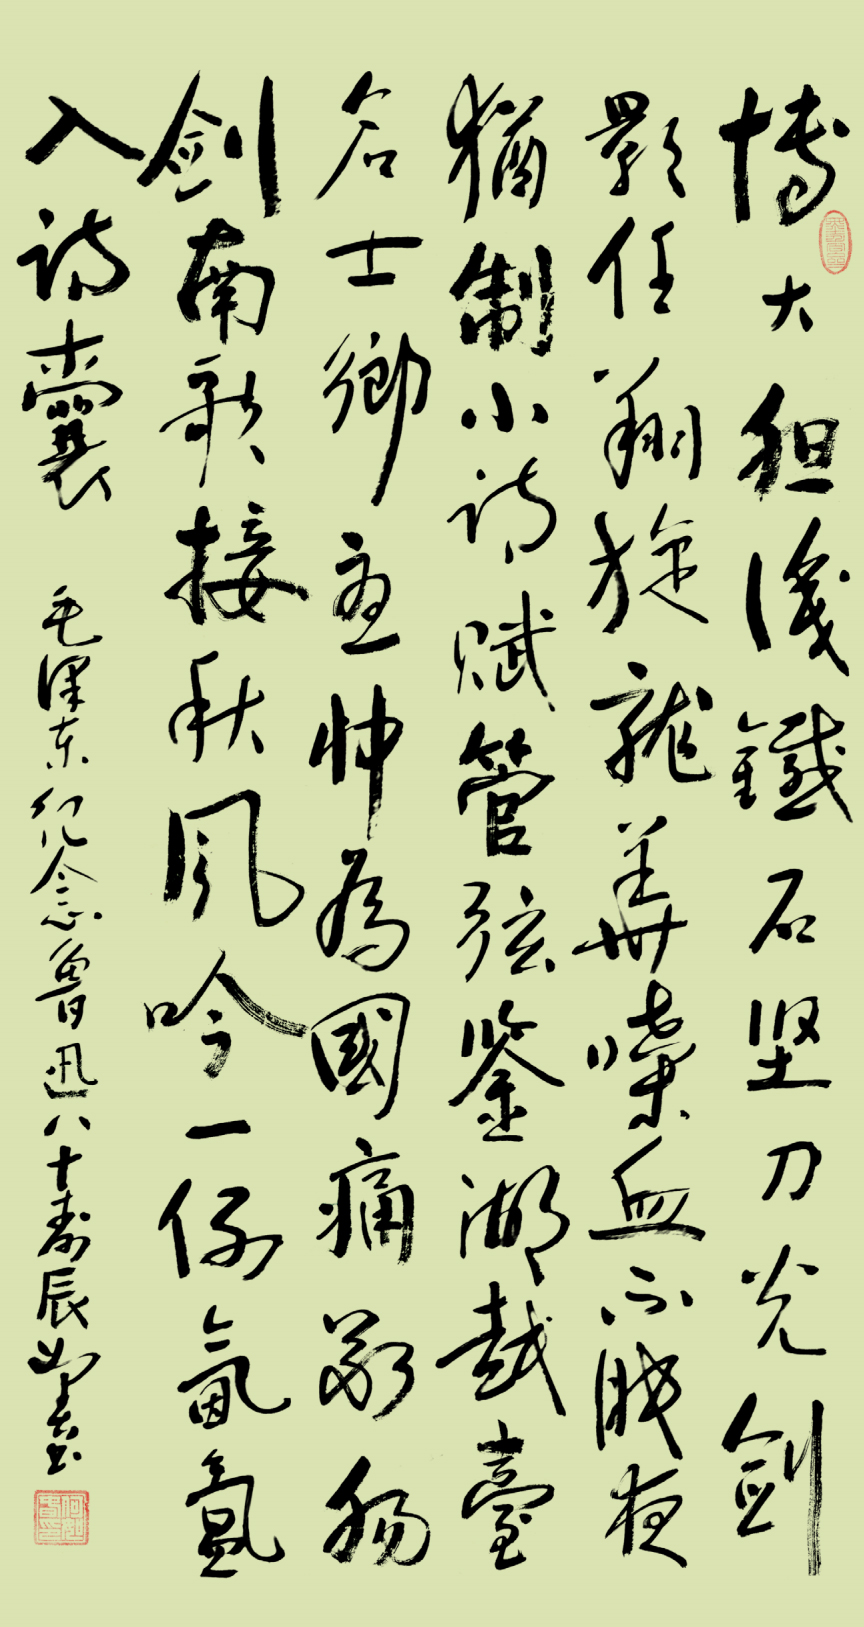 博大胆識鐵石坚刀光剑
影任翔旋龍華喋血不眠夜
猶制小诗赋管弦鉴湖越臺
名士鄉忧忡為國痛断肠
剑南歌接秋风吟一例氤氲
入诗囊 毛泽东纪念鲁迅八十寿辰